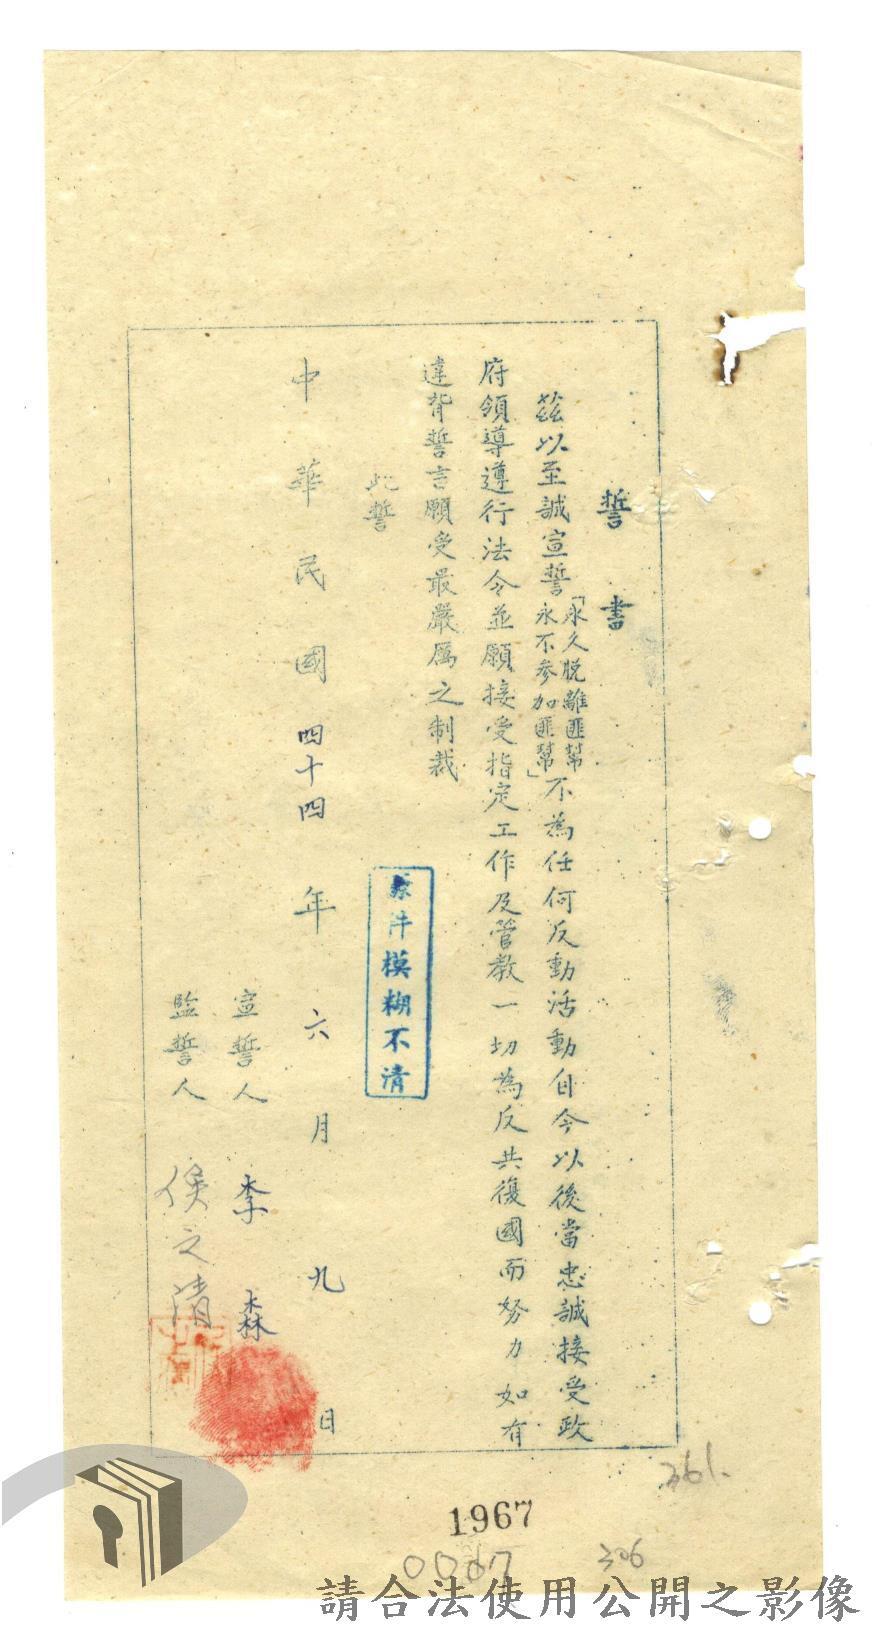 誓書
茲以至誠宣誓「永久脫離匪幫永不參加匪幫」不為任何反動活動自今以後當忠誠接受政
府領導遵行法令並願接受指定工作及管教一切為反共復國而努力如有
違背誓言願受最嚴厲之制裁
此誓
原件模糊不清
中華民國四十四年六月九日
宣誓人 李森
監誓人 侯之清
361.
1967
0067
306
請合法使用公開之影像